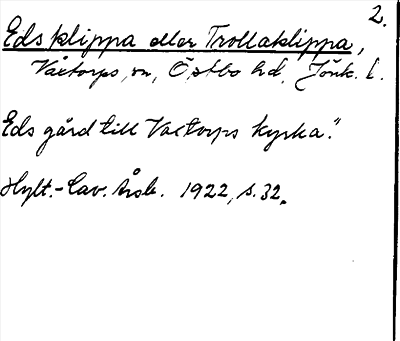 2.
Eds klippa eller Trollaklippa,
Våxtorps sn, Östbo hd. Jönk. l.
Eds gård till Vaxtorps kyrka."
Hylt.-Cav. Årsb. 1922, s. 32.